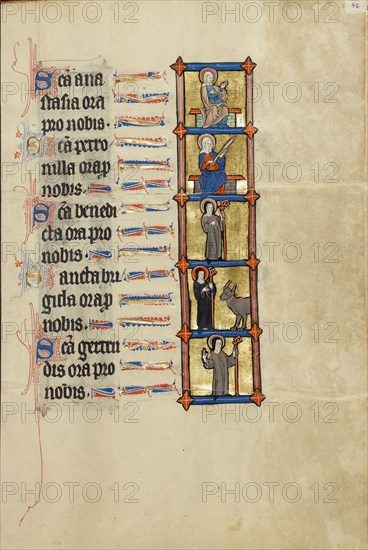 46
Sc̄a ana
stasia ora
pro nobis.
Sc̄a petro
nilla ora p
nobis.
Sc̄a benedi
cta ora pro
nobis.
Sancta bri
gida ora p
nobis.
Sc̄a gertru
dis ora pro
nobis.
PHOTO 12